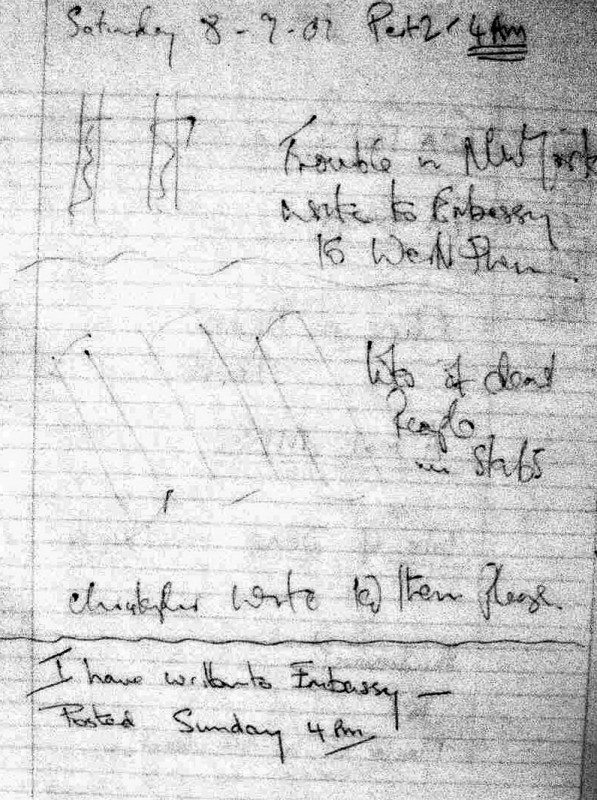 Saturday 8-9-01 Part 2 4 Am
Trouble in New York
write to Embassy
to Warn Them.
lots of dead
People
in
christopher write to them Please.
I have written to Embassy —
Posted Sunday 4 Pm